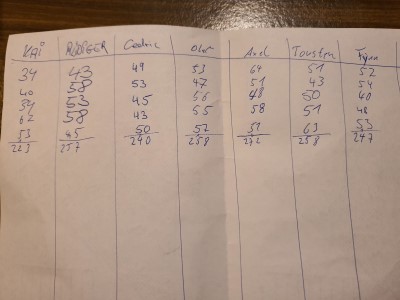 KAI RÜDIGER Cedric Olaf Axel Torsten Fynn
34 43 49 53 64 51 52
40 58 53 47 51 43 54
34 53 45 48 50 40
62 58 43 55 58 51 48
53 45 50 57 51 63 53
223 257 240 258 272 258 247